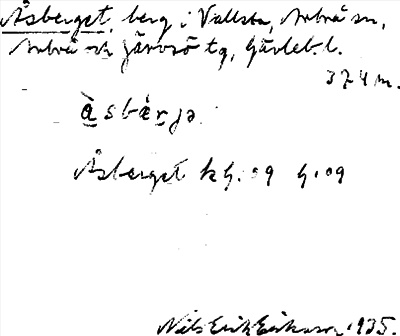 Åsberget, berg i Vallsta, Arbrå sn,
Arbrå och Järvsö tg, Gävleb. l.
374 m.
àsbærjə
Åsberget kg: 09 G: 09
Nils Erik Eriksson 1935.